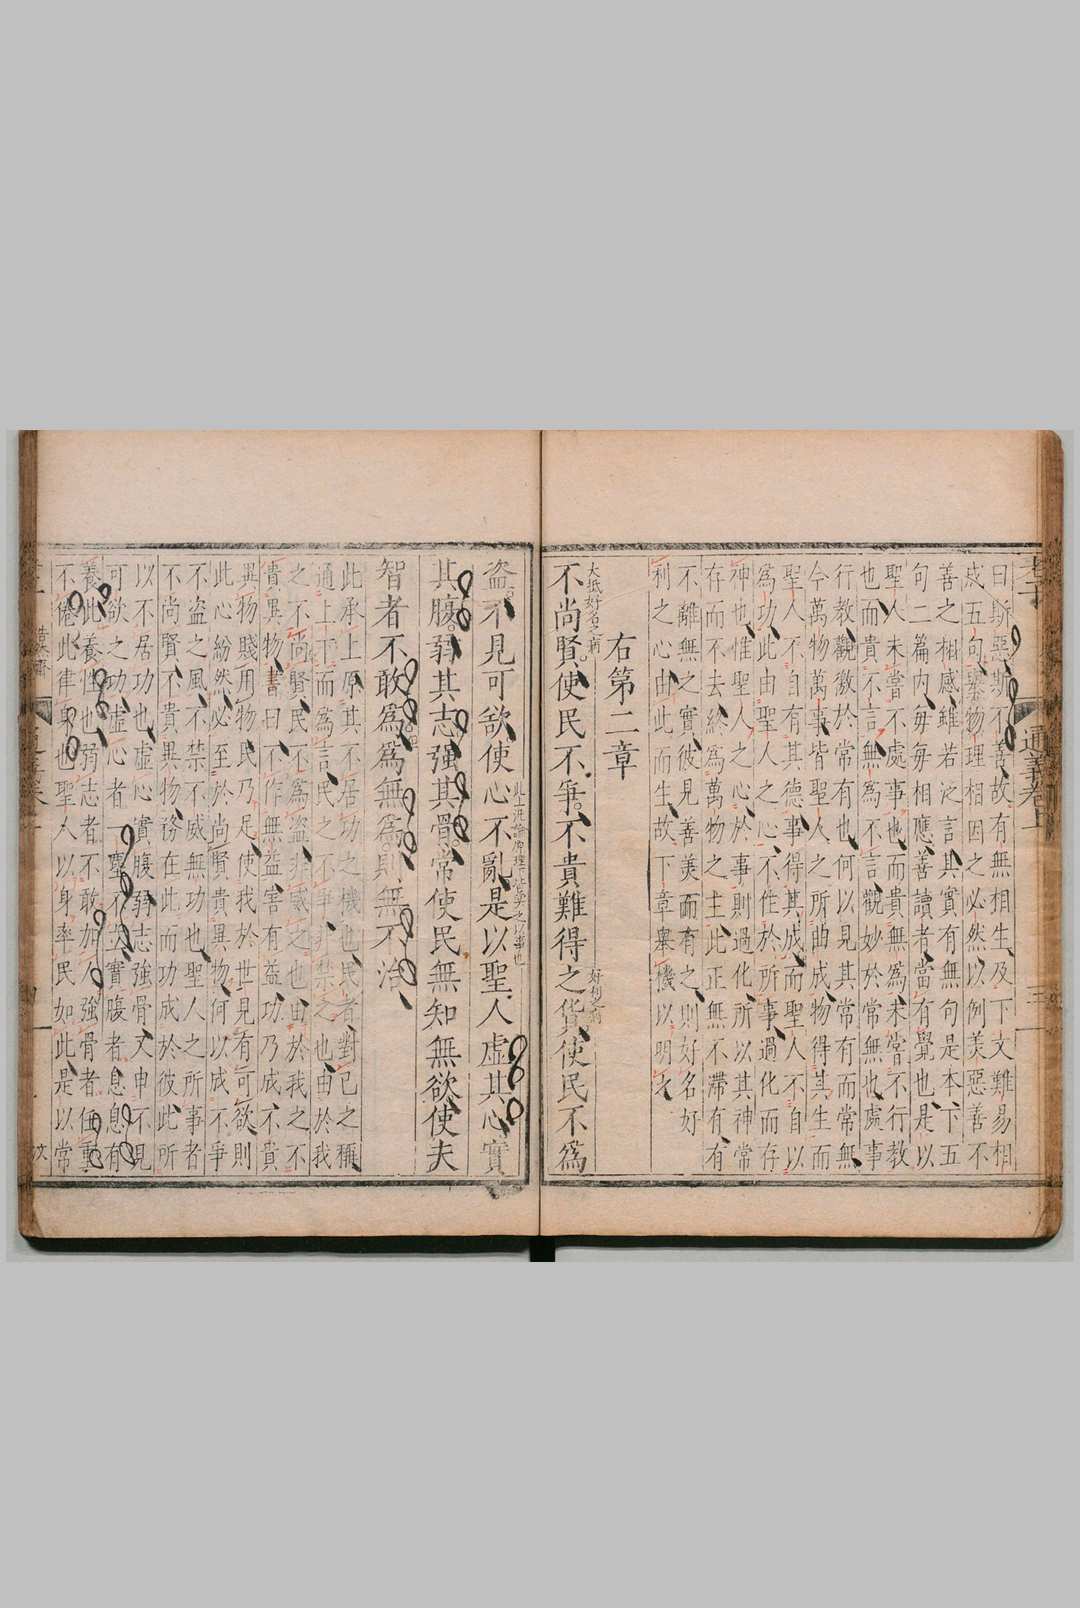 曰斯惡斯不善故有無相生及下文難易相
成五句舉物理相因之必然以例美惡善不
善之相感雖若泛言其實有無句是本下五
句二篇內每每相應善讀者當有覺也是以
聖人未嘗不處事也而貴無爲未嘗不行教
也而貴不言無爲不言觀妙於常無也處事
行教觀徼於常有也何以見其常有而常無
今萬物萬事皆聖人之所曲成物得其生而
聖人不自有其德事得其成而聖人不自以
爲功此由聖人之心不作於所事過化而存
神也惟聖人之心於事則過化所以其神常
存而不去終為萬物之主此正無不滯有有
不離無之實彼見善美而有之則好名好
利之心由此而生故下章舉機以明之
右第二章
大抵好名之蔽
不尚賢使民不爭不貴難得之貨使民不爲
盜不見可欲使心不亂是以聖人虛其心實
其腹弱其志強其骨常使民無知無欲使夫
智者不敢爲爲無爲則無不治
此承上原其不居功之機也民者對已之稱
通上下而爲言民之不爭非禁之也由於我
之不尚賢民不爲盜非威之也由於我之不
貴異物書曰不作無益害有益功乃成不貴
異物賤用物民乃足使我於世見有可欲則
此心紛然必至於尚賢貴異物何以成不爭
不盜之風不禁不威無功也聖人之所事者
不尚賢不貴異物務在此而功成於彼此所
以不居功也虛心實腹弱志強骨又申不見
可欲之功虛心者一塵不立實腹者息息有
養此養性也弱志者不敢加人強骨者任重
不倦此律身也聖人以身率民如此是以常